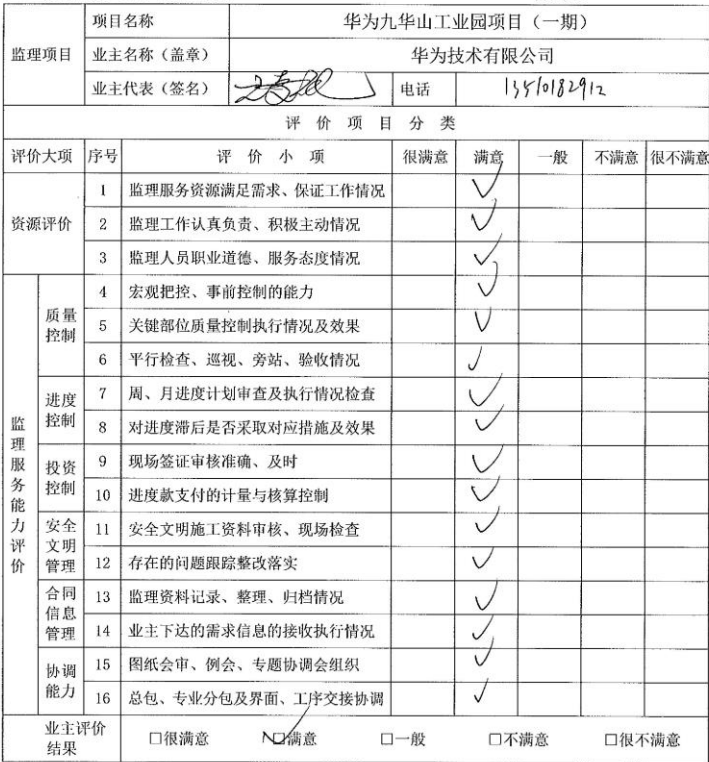 监理项目
项目名称 华为九华山工业园项目（一期）
业主名称（盖章） 华为技术有限公司
业主代表（签名） 电话 13510182912
评 价 项 目 分 类
评价大项 序号 评 价 小 项 很满意 满意 一般 不满意 很不满意
资源评价
1 监理服务资源满足需求、保证工作情况 ✓
2 监理工作认真负责、积极主动情况 ✓
3 监理人员职业道德、服务态度情况 ✓
监理服务能力评价
质量控制
4 宏观把控、事前控制的能力 ✓
5 关键部位质量控制执行情况及效果 ✓
6 平行检查、巡视、旁站、验收情况 ✓
进度控制
7 周、月进度计划审查及执行情况检查 ✓
8 对进度滞后是否采取对应措施及效果 ✓
投资控制
9 现场签证审核准确、及时 ✓
10 进度款支付的计量与核算控制 ✓
安全文明管理
11 安全文明施工资料审核、现场检查 ✓
12 存在的问题跟踪整改落实 ✓
合同信息管理
13 监理资料记录、整理、归档情况 ✓
14 业主下达的需求信息的接收执行情况 ✓
协调能力
15 图纸会审、例会、专题协调会组织 ✓
16 总包、专业分包及界面、工序交接协调 ✓
业主评价结果 □很满意 ☑满意 □一般 □不满意 □很不满意